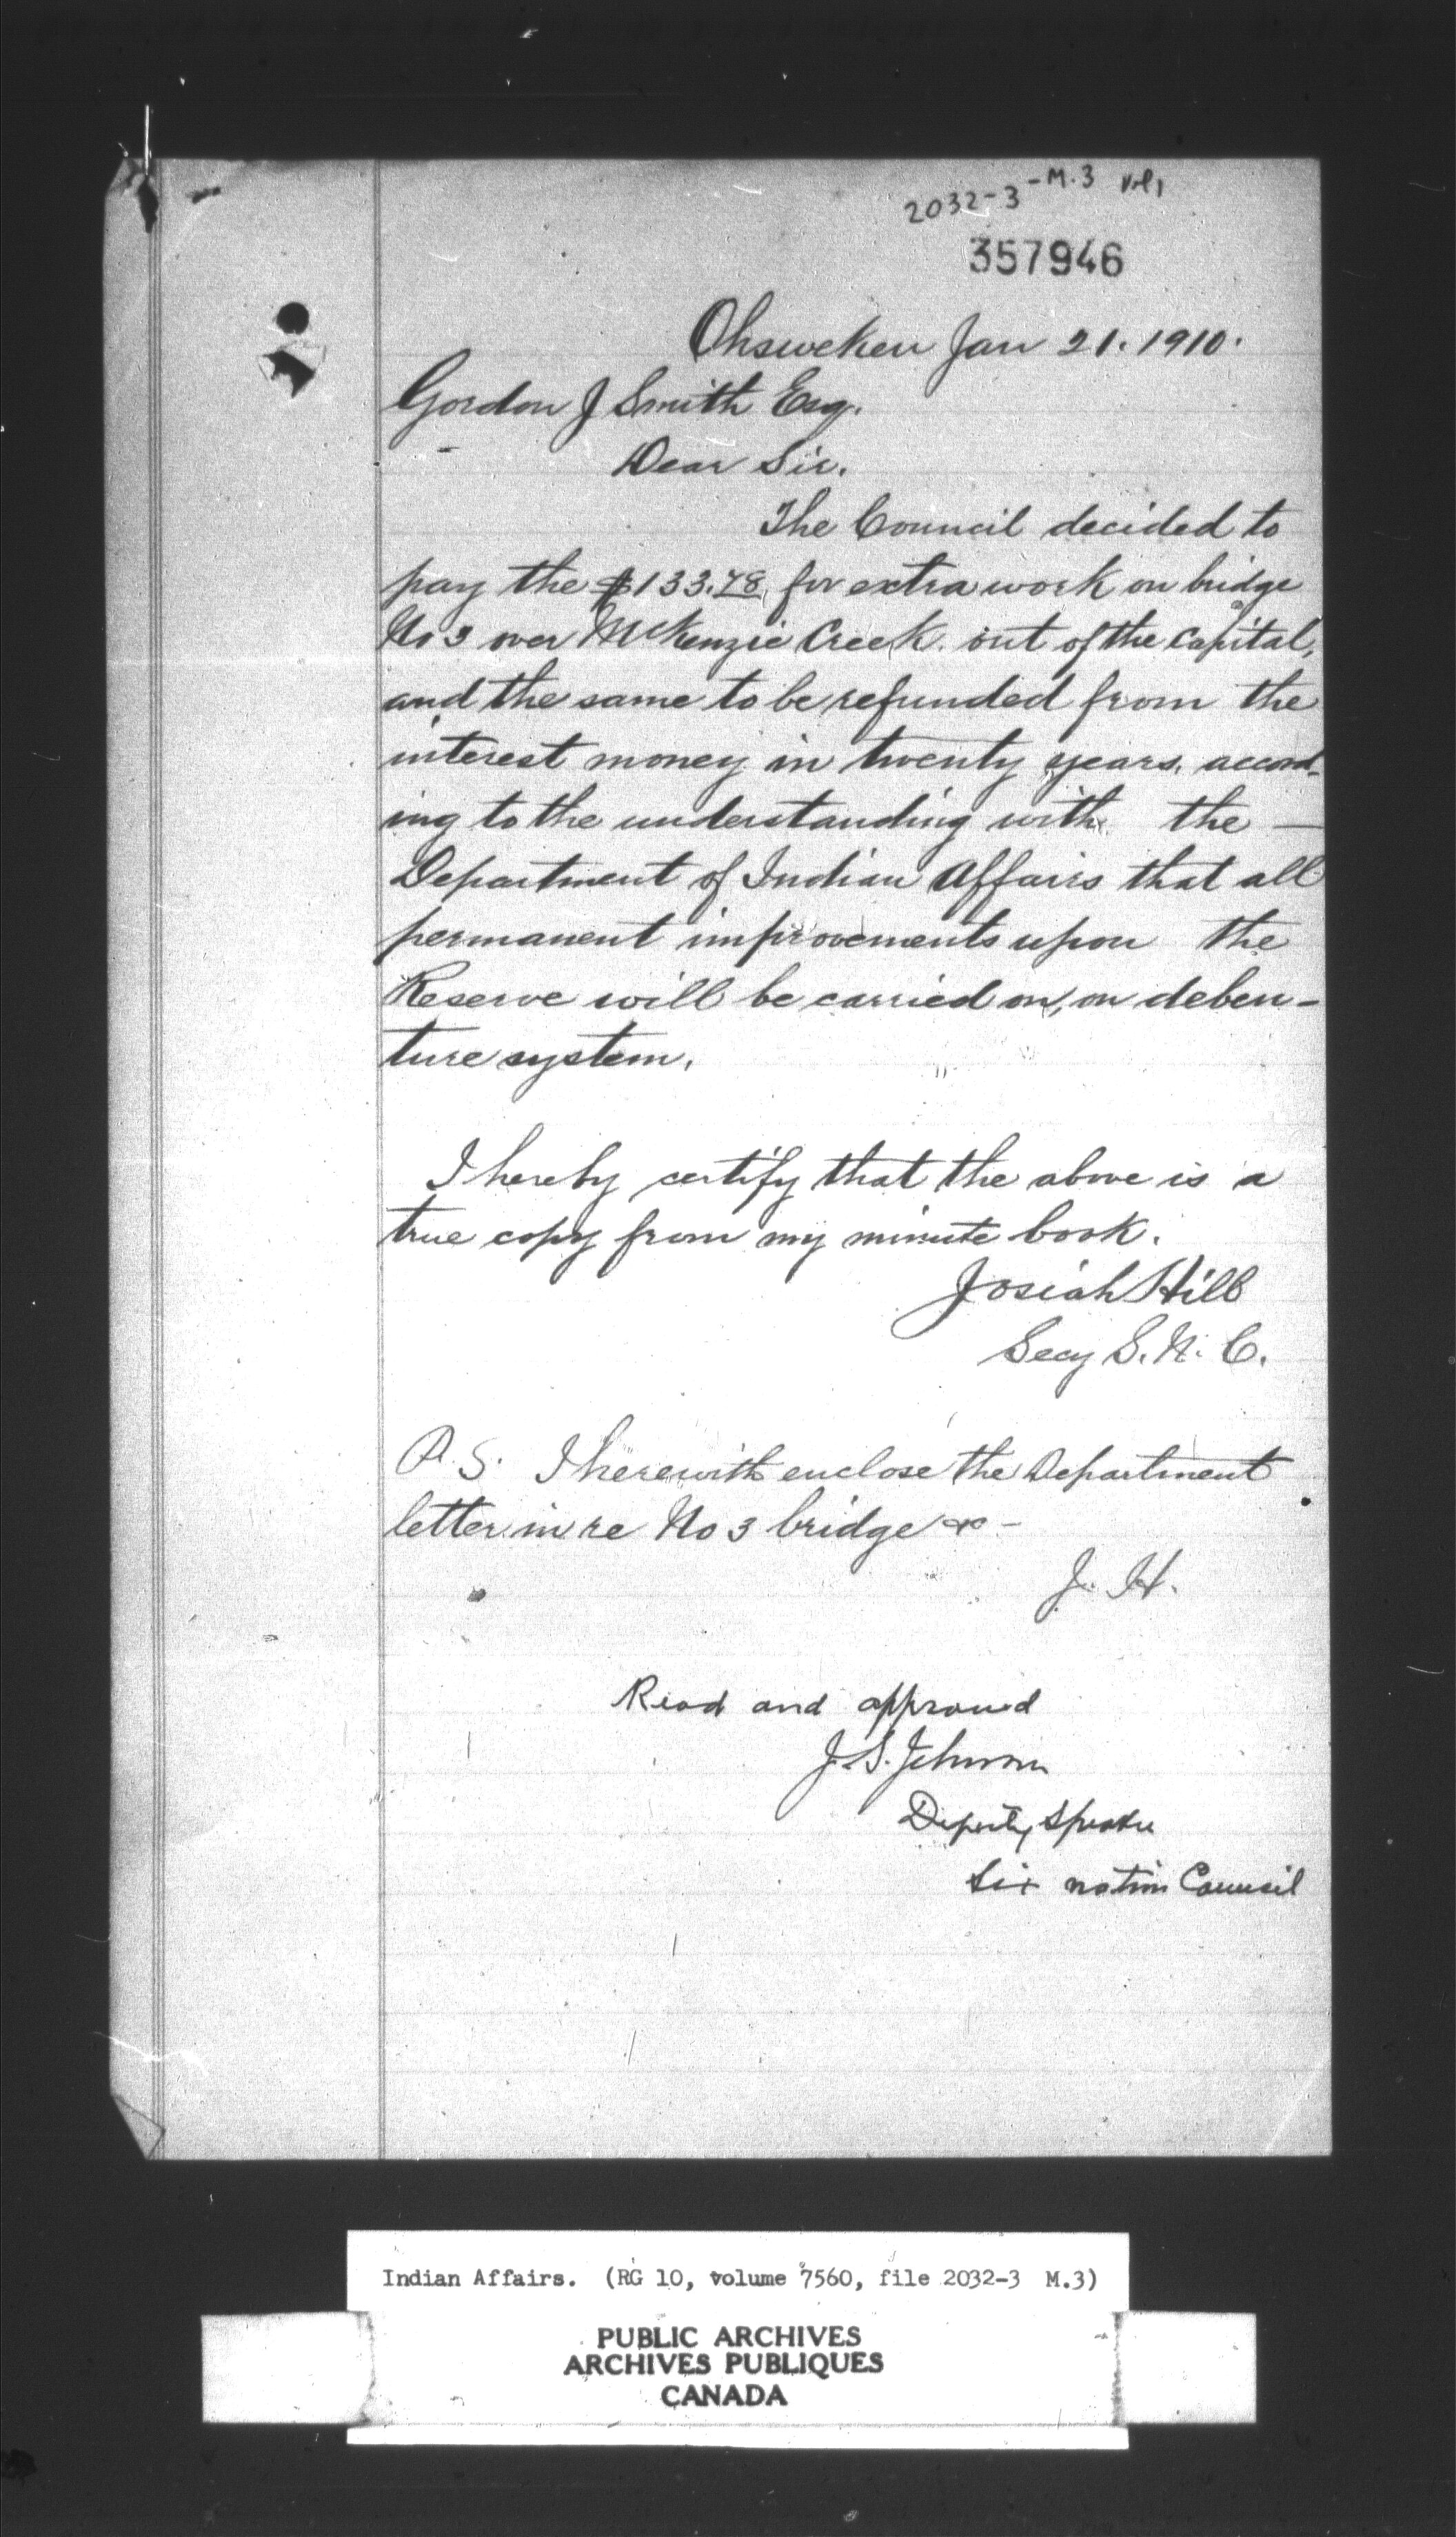 2032-3-M.3 Vol 1
357946
Ohsweken Jan 21. 1910.
Gordon J Smith Esq.
Dear Sir.
The Council decided to
pay the $133.78 for extra work on bridge
No 3 over McKenzie Creek. out of the Capital,
and the same to be refunded from the
interest money in twenty years, accord-
ing to the understanding with the —
Department of Indian Affairs that all
permanent improvements upon the
Reserve will be carried on, on deben-
ture system.
I hereby certify that the above is a
true copy from my minute book.
Josiah Hill
Secy S. N. C.
P.S. I herewith enclose the Department
letter in re No 3 bridge &c -
J. H.
Read and approved
J. S. Johnson
Deputy Speaker
Six nation Council
Indian Affairs. (RG 10, volume 7560, file 2032-3 M.3)
PUBLIC ARCHIVES
ARCHIVES PUBLIQUES
CANADA